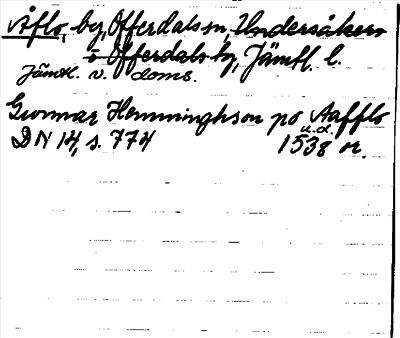 Åflo, by, Offerdals sn, Undersåkers
o Offerdals tg, Jämtl. l.
Jämtl. v. doms.
Gunnar Hemminghson po Aafflo
DN 14, s. 774 u.d. 1538 or.